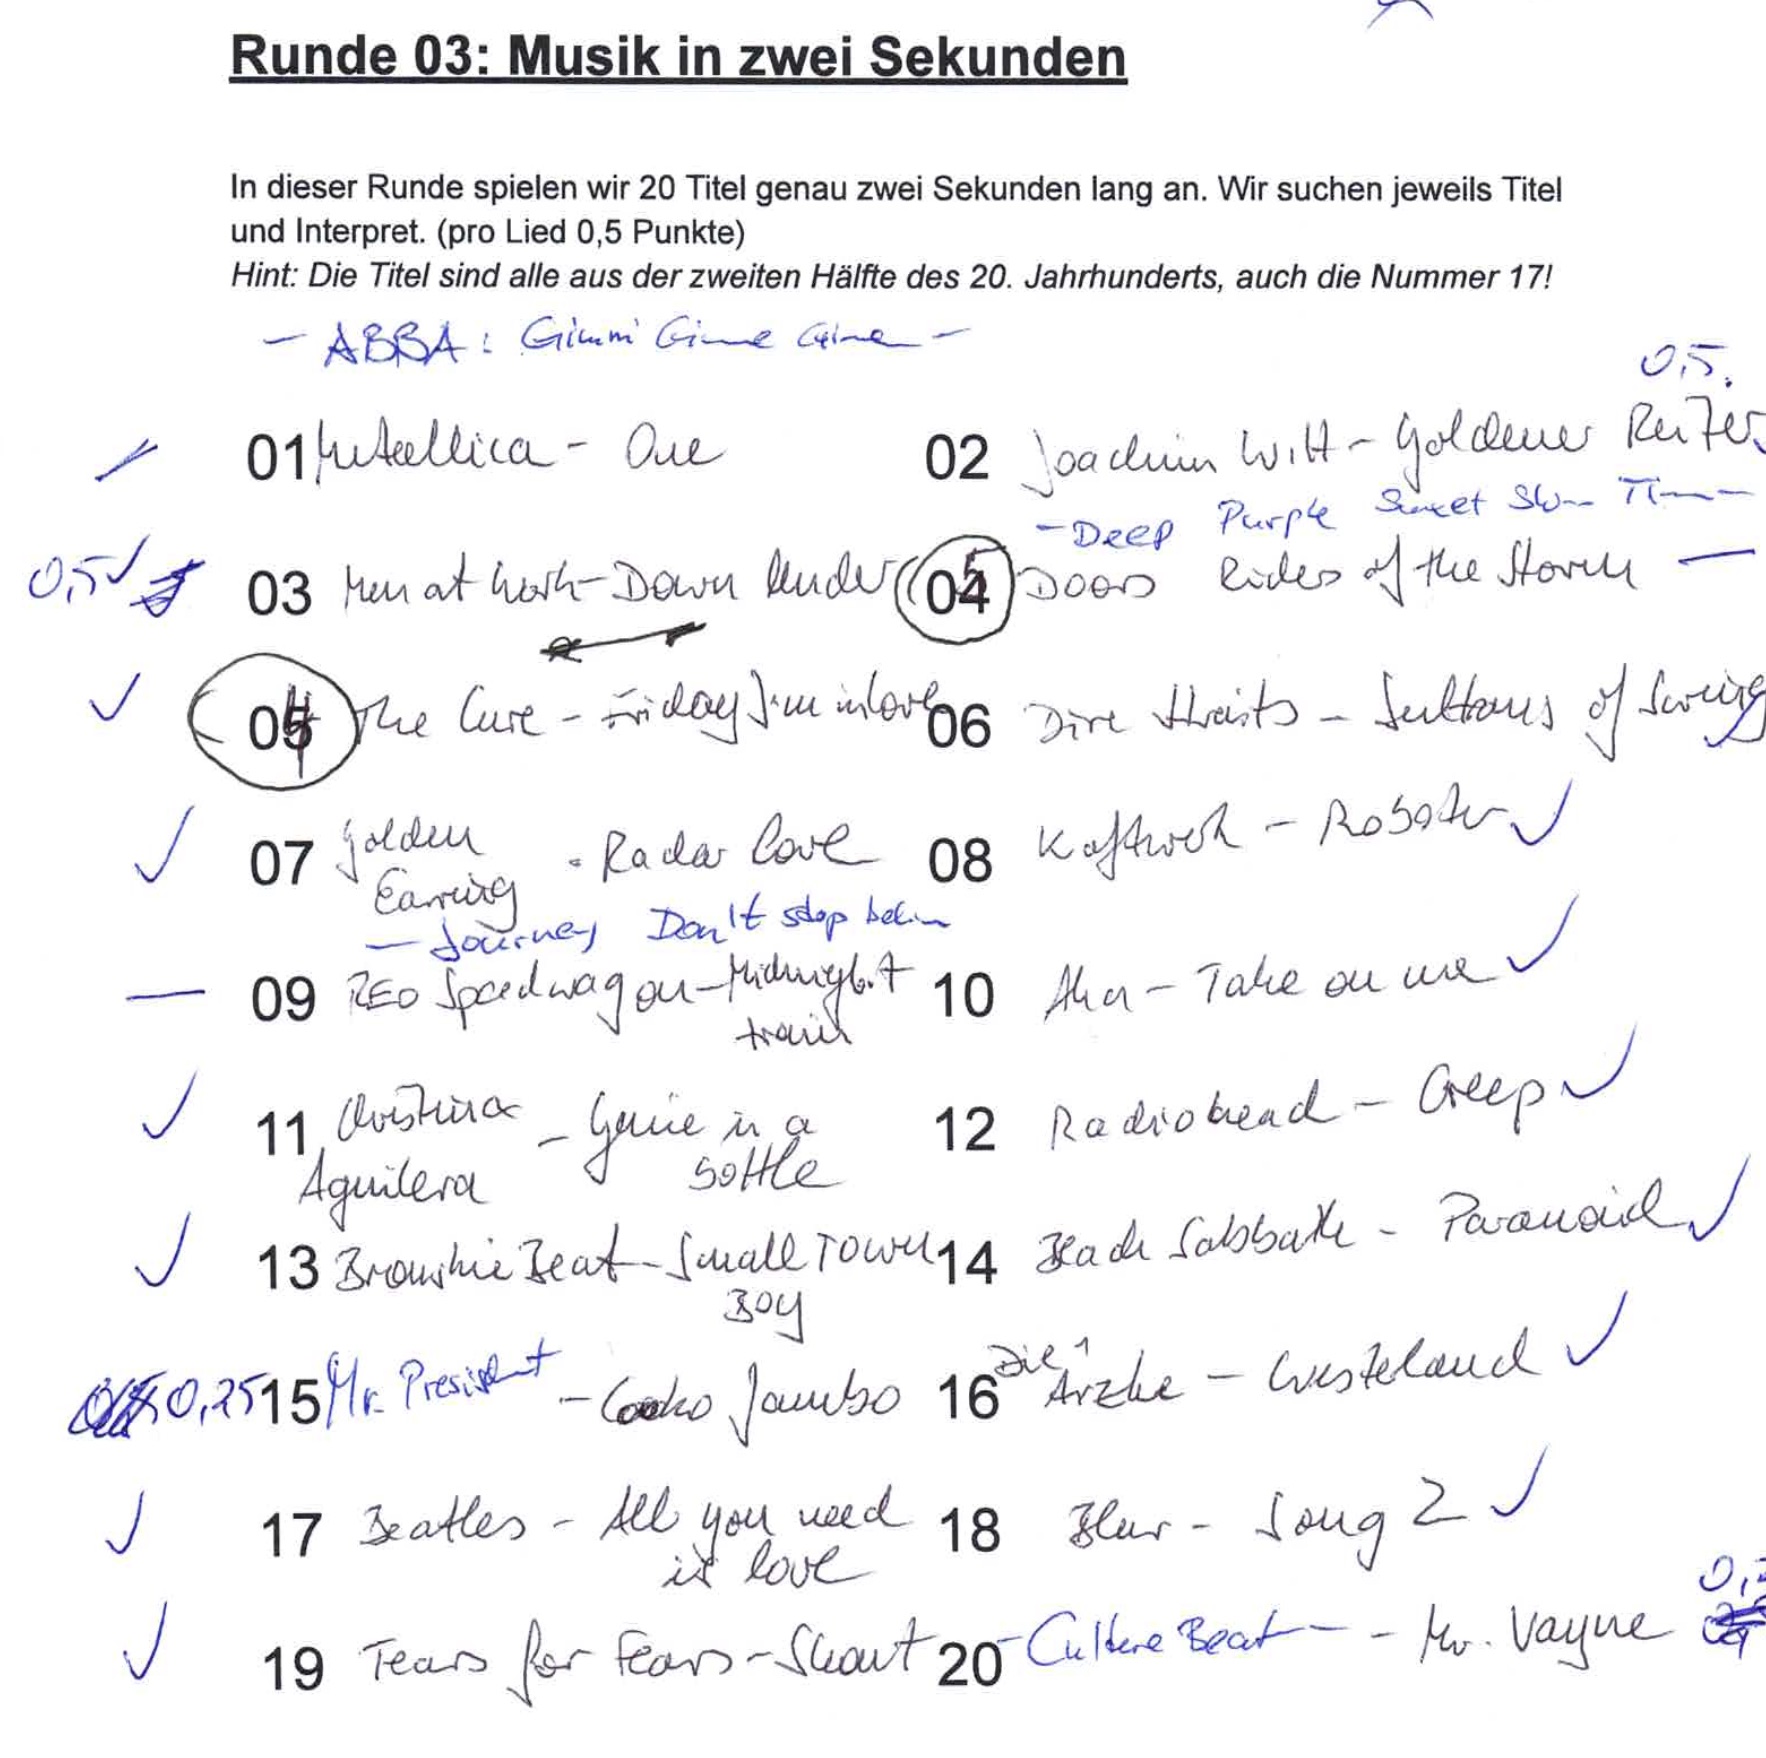 Runde 03: Musik in zwei Sekunden
In dieser Runde spielen wir 20 Titel genau zwei Sekunden lang an. Wir suchen jeweils Titel
und Interpret. (pro Lied 0,5 Punkte)
Hint: Die Titel sind alle aus der zweiten Hälfte des 20. Jahrhunderts, auch die Nummer 17!
- ABBA: Gimmi Gime Gime -
0,5.
01 Metallica - One 02 Joachim Witt - Goldener Reiter
- Deep Purple Sweet
0,5 03 Men at Work - Down Under 05 Doors Rides of the Storm
04 The Cure - Friday I'm in love 06 Dire Straits - Sultans of Swing
07 Golden Earring - Radar Love 08 Kraftwerk - Roboter
- Journey Don't stop
09 REO Speedwagon - Midnight train 10 Aha - Take on me
11 Christina Aguilera - Genie in a Bottle 12 Radiohead - Creep
13 Bronskie Beat - Small Town Boy 14 Black Sabbath - Paranoid
0,25 15 Mr. President - Coko Jambo 16 Die Ärzte - Westerland
17 Beatles - All you need is love 18 Blur - Song 2
19 Tears for Fears - Shout 20 - Culture Beat - - Mr. Vayne